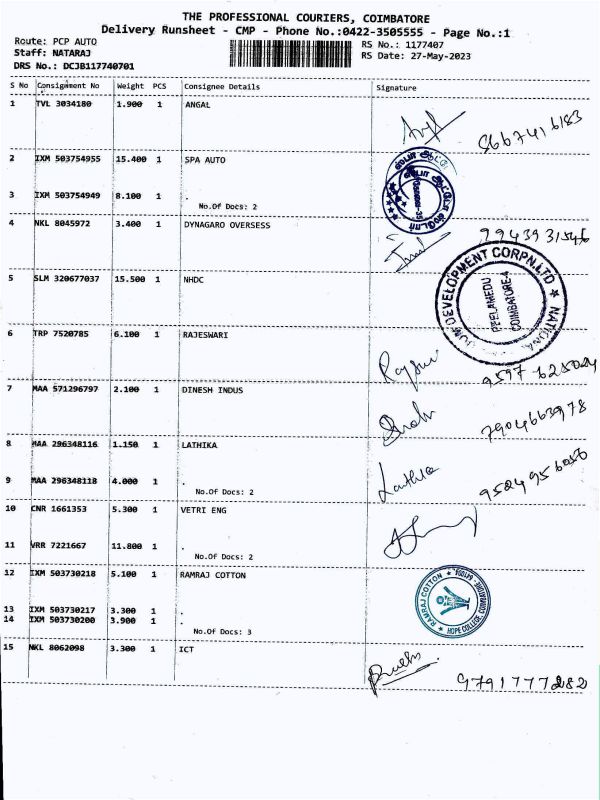 THE PROFESSIONAL COURIERS, COIMBATORE
Delivery Runsheet - CMP - Phone No.:0422-3505555 - Page No.:1
Route: PCP AUTO RS No.: 1177407
Staff: NATARAJ RS Date: 27-May-2023
DRS No.: DCJB117740701
S No Consignment No Weight PCS Consignee Details Signature
1 TVL 3034180 1.900 1 ANGAL
8667416183
2 IXM 503754955 15.400 1 SPA AUTO
3 IXM 503754949 8.100 1 .
No.Of Docs: 2
4 NKL 8045972 3.400 1 DYNAGARO OVERSESS
9943931546
5 SLM 320677037 15.500 1 NHDC
DEVELOPMENT CORPN.LTD ★ NATIONAL
PEELAMEDU
COIMBATORE-4
6 TRP 7520785 6.100 1 RAJESWARI
7 MAA 571296797 2.100 1 DINESH INDUS
7904663978
8 MAA 296348116 1.150 1 LATHIKA
Lathika
9 MAA 296348118 4.000 1 .
No.Of Docs: 2
9524956056
10 CNR 1661353 5.300 1 VETRI ENG
11 VRR 7221667 11.800 1 .
No.Of Docs: 2
12 IXM 503730218 5.100 1 RAMRAJ COTTON
RAMRAJ COTTON ★ HOPE COLLEGE, COIMBATORE
13 IXM 503730217 3.300 1 .
14 IXM 503730200 3.900 1 .
No.Of Docs: 3
15 NKL 8062098 3.300 1 ICT
9791777282